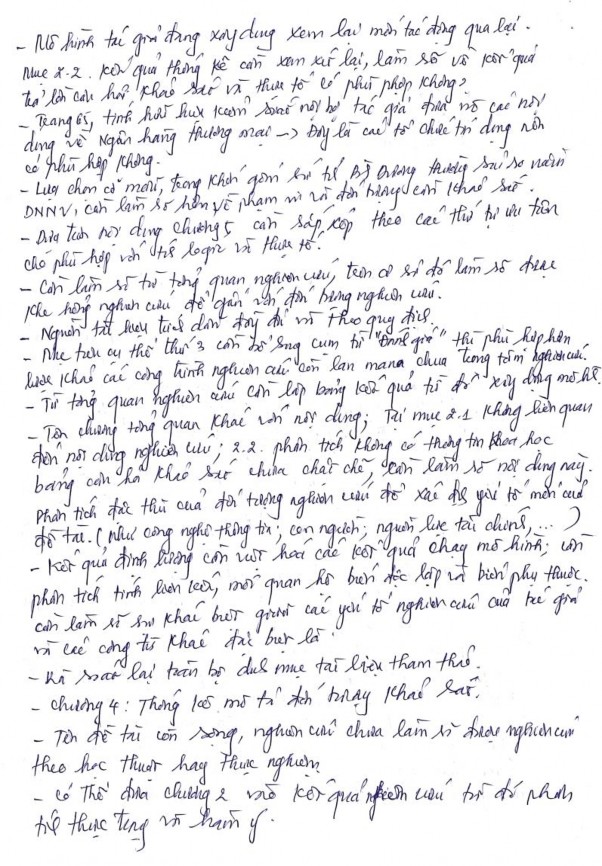 - Mô hình tác giả đang xây dựng xem lại mối tác động qua lại.
Mục 2.2. Kết quả thống kê cần xem xét lại, làm rõ về kết quả
trả lời câu hỏi khảo sát và thực tế có phù hợp không?
- Trang 65, tính hữu hiệu kiểm soát nội bộ tác giả đưa nội
dung về Ngân hàng thương mại -> Đây là các tổ chức tín dụng nên
có phù hợp không.
- Lựa chọn cỡ mẫu, trong Bình Dương
DNNV, cần làm rõ hơn về phạm vi và đối tượng cần khảo sát.
- Đưa nội dung chương 5 cần sắp xếp theo các thứ tự ưu tiên
cho phù hợp với tính logic và thực tế.
- Cần làm rõ từ tổng quan nghiên cứu, trên cơ sở đó làm rõ được
khe hổng nghiên cứu để gắn với đối tượng nghiên cứu.
- Nguồn tài liệu trích dẫn đầy đủ và theo quy định.
- Mục tiêu cụ thể thứ 3 cần bổ sung cụm từ "Đánh giá" thì phù hợp hơn
lược khảo các công trình nghiên cứu còn lan man chưa trọng tâm nghiên cứu.
- Từ tổng quan nghiên cứu cần lập bảng kết quả từ đó xây dựng mô hình.
- Tên chương tổng quan khác với nội dung; Tại mục 2.1 không liên quan
đến nội dung nghiên cứu; 2.2. phân tích không có thông tin khoa học
bảng câu hỏi khảo sát chưa chặt chẽ cần làm rõ nội dung này.
Phân tích đặc thù của đối tượng nghiên cứu để xác định yếu tố mới của
đề tài. (như công nghệ thông tin; con người; nguồn lực tài chính, ...)
- Kết quả định lượng cần hoá các kết quả chạy mô hình; cần
phân tích tính liên kết, mối quan hệ biến độc lập và biến phụ thuộc.
cần làm rõ sự khác biệt giữa các yếu tố nghiên cứu của tác giả
và các công ty khác đặc biệt là
- Rà soát lại toàn bộ danh mục tài liệu tham thảo.
- Chương 4: Thống kê mô tả đối tượng khảo sát.
- Tên đề tài còn rộng, nghiên cứu chưa làm rõ được nghiên cứu
theo học thuật hay thực nghiệm.
- Có thể đưa chương 2 vào kết quả nghiên cứu từ đó phân
tích thực trạng và hàm ý.